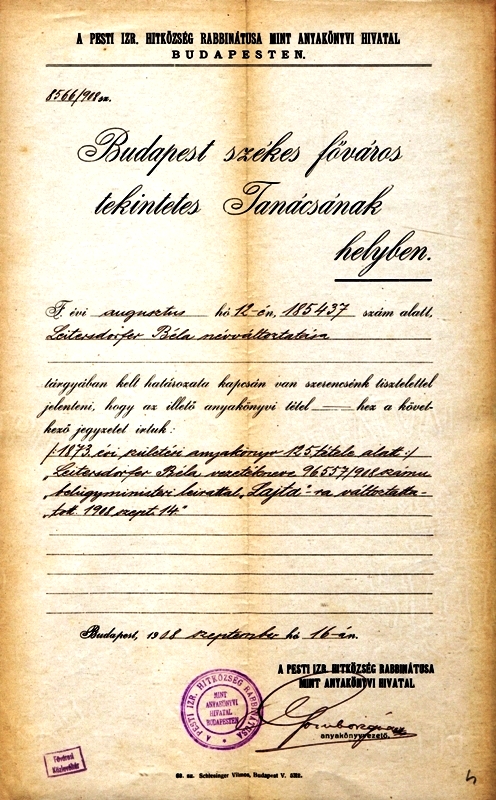 A PESTI IZR. HITKÖZSÉG RABBINÁTUSA MINT ANYAKÖNYVI HIVATAL
BUDAPESTEN.
8566/908 sz.
Budapest székes főváros
tekintetes Tanácsának
helyben.
F. évi augusztus hó 12-én, 185437 szám alatt,
Leitersdorfer Béla névváltoztatása
tárgyában kelt határozata kapcsán van szerencsénk tisztelettel
jelenteni, hogy az illető anyakönyvi tétel hez a követ-
kező jegyzetet irtuk:
/: 1873. évi születési anyakönyv 125 tétele alatt :/
„Leitersdorfer Béla vezetékneve 96557/908 számu
belügyministeri leirattal „Lajta"-ra változtatta-
tott. 1908 szept 14."
Budapest, 1908 szeptember hó 16-án.
A PESTI IZR. HITKÖZSÉG RABBINÁTUSA
MINT ANYAKÖNYVI HIVATAL
anyakönyvvezető.
A PESTI IZR. HITKÖZSÉG RABBINÁTUSA
MINT
ANYAKÖNYVI
HIVATAL
BUDAPESTEN
Fővárosi
Közlevéltár
60. sz. Schlesinger Vilmos, Budapest V.